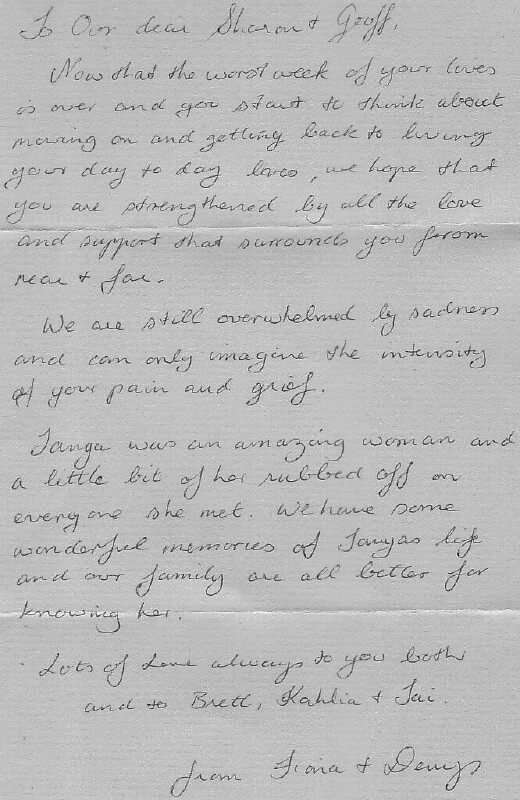 To Our dear Sharon + Geoff,
Now that the worst week of your lives
is over and you start to think about
moving on and getting back to living
your day to day lives, we hope that
you are strengthened by all the love
and support that surrounds you from
near + far.
We are still overwhelmed by sadness
and can only imagine the intensity
of your pain and grief.
Tanya was an amazing woman and
a little bit of her rubbed off on
everyone she met. We have some
wonderful memories of Tanyas life
and our family are all better for
knowing her.
Lots of Love always to you both
and to Brett, Kahlia + Tai.
from Fiona + Denys